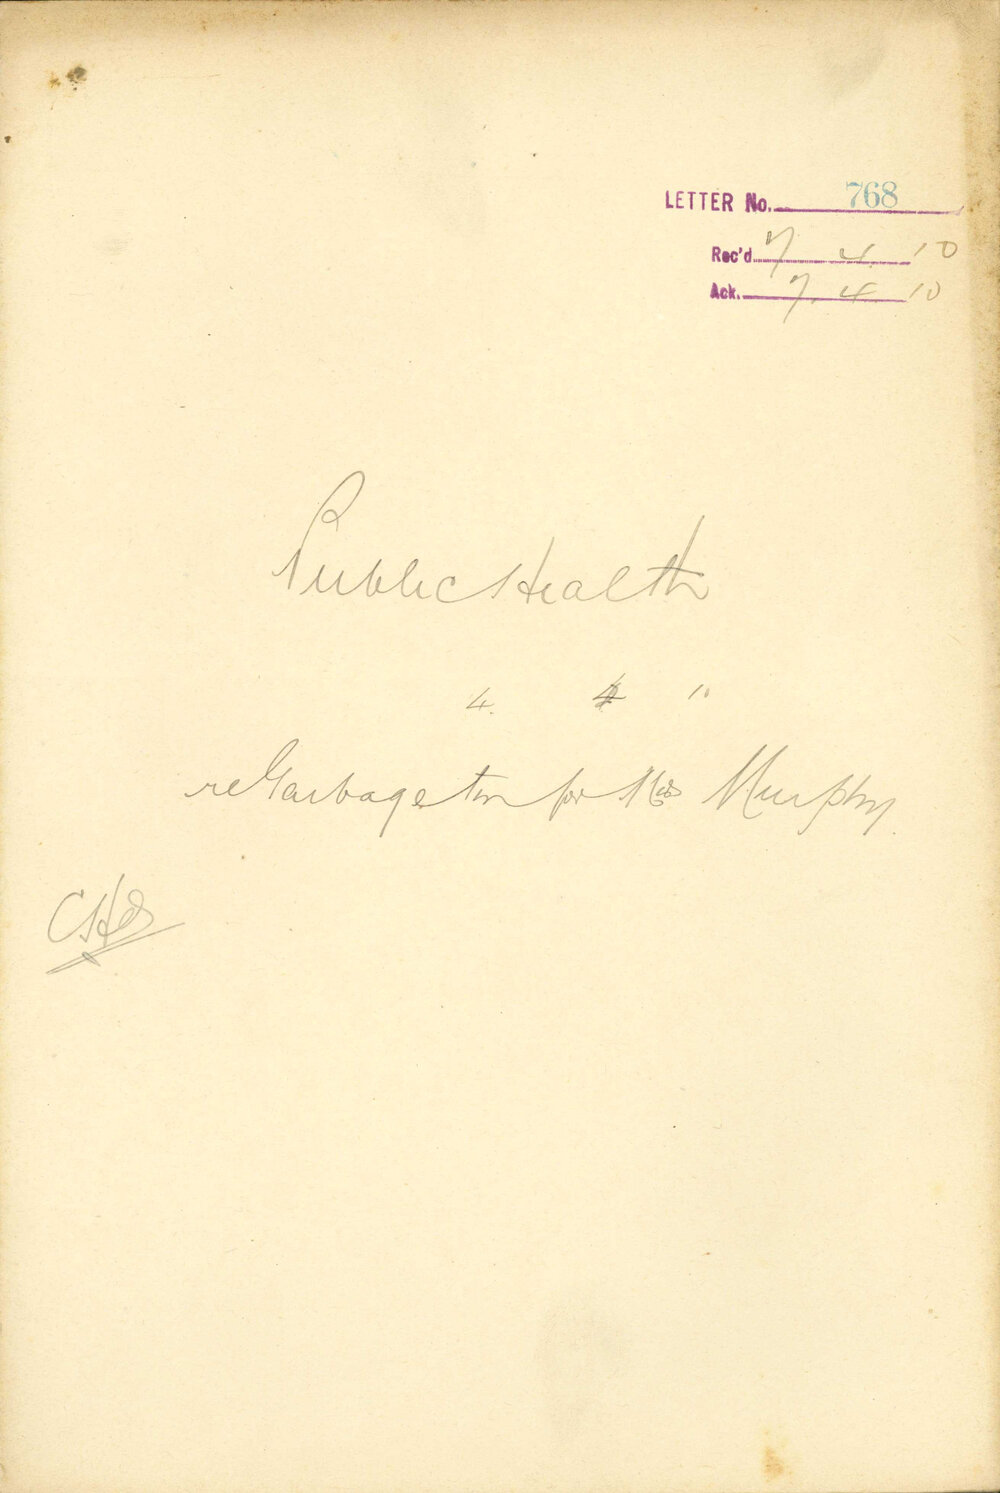 LETTER No. 768
Rec'd 7 4 10
Ack. 7. 4 10
Public Health
4. 4 10
re Garbage tin for Mrs Murphy.